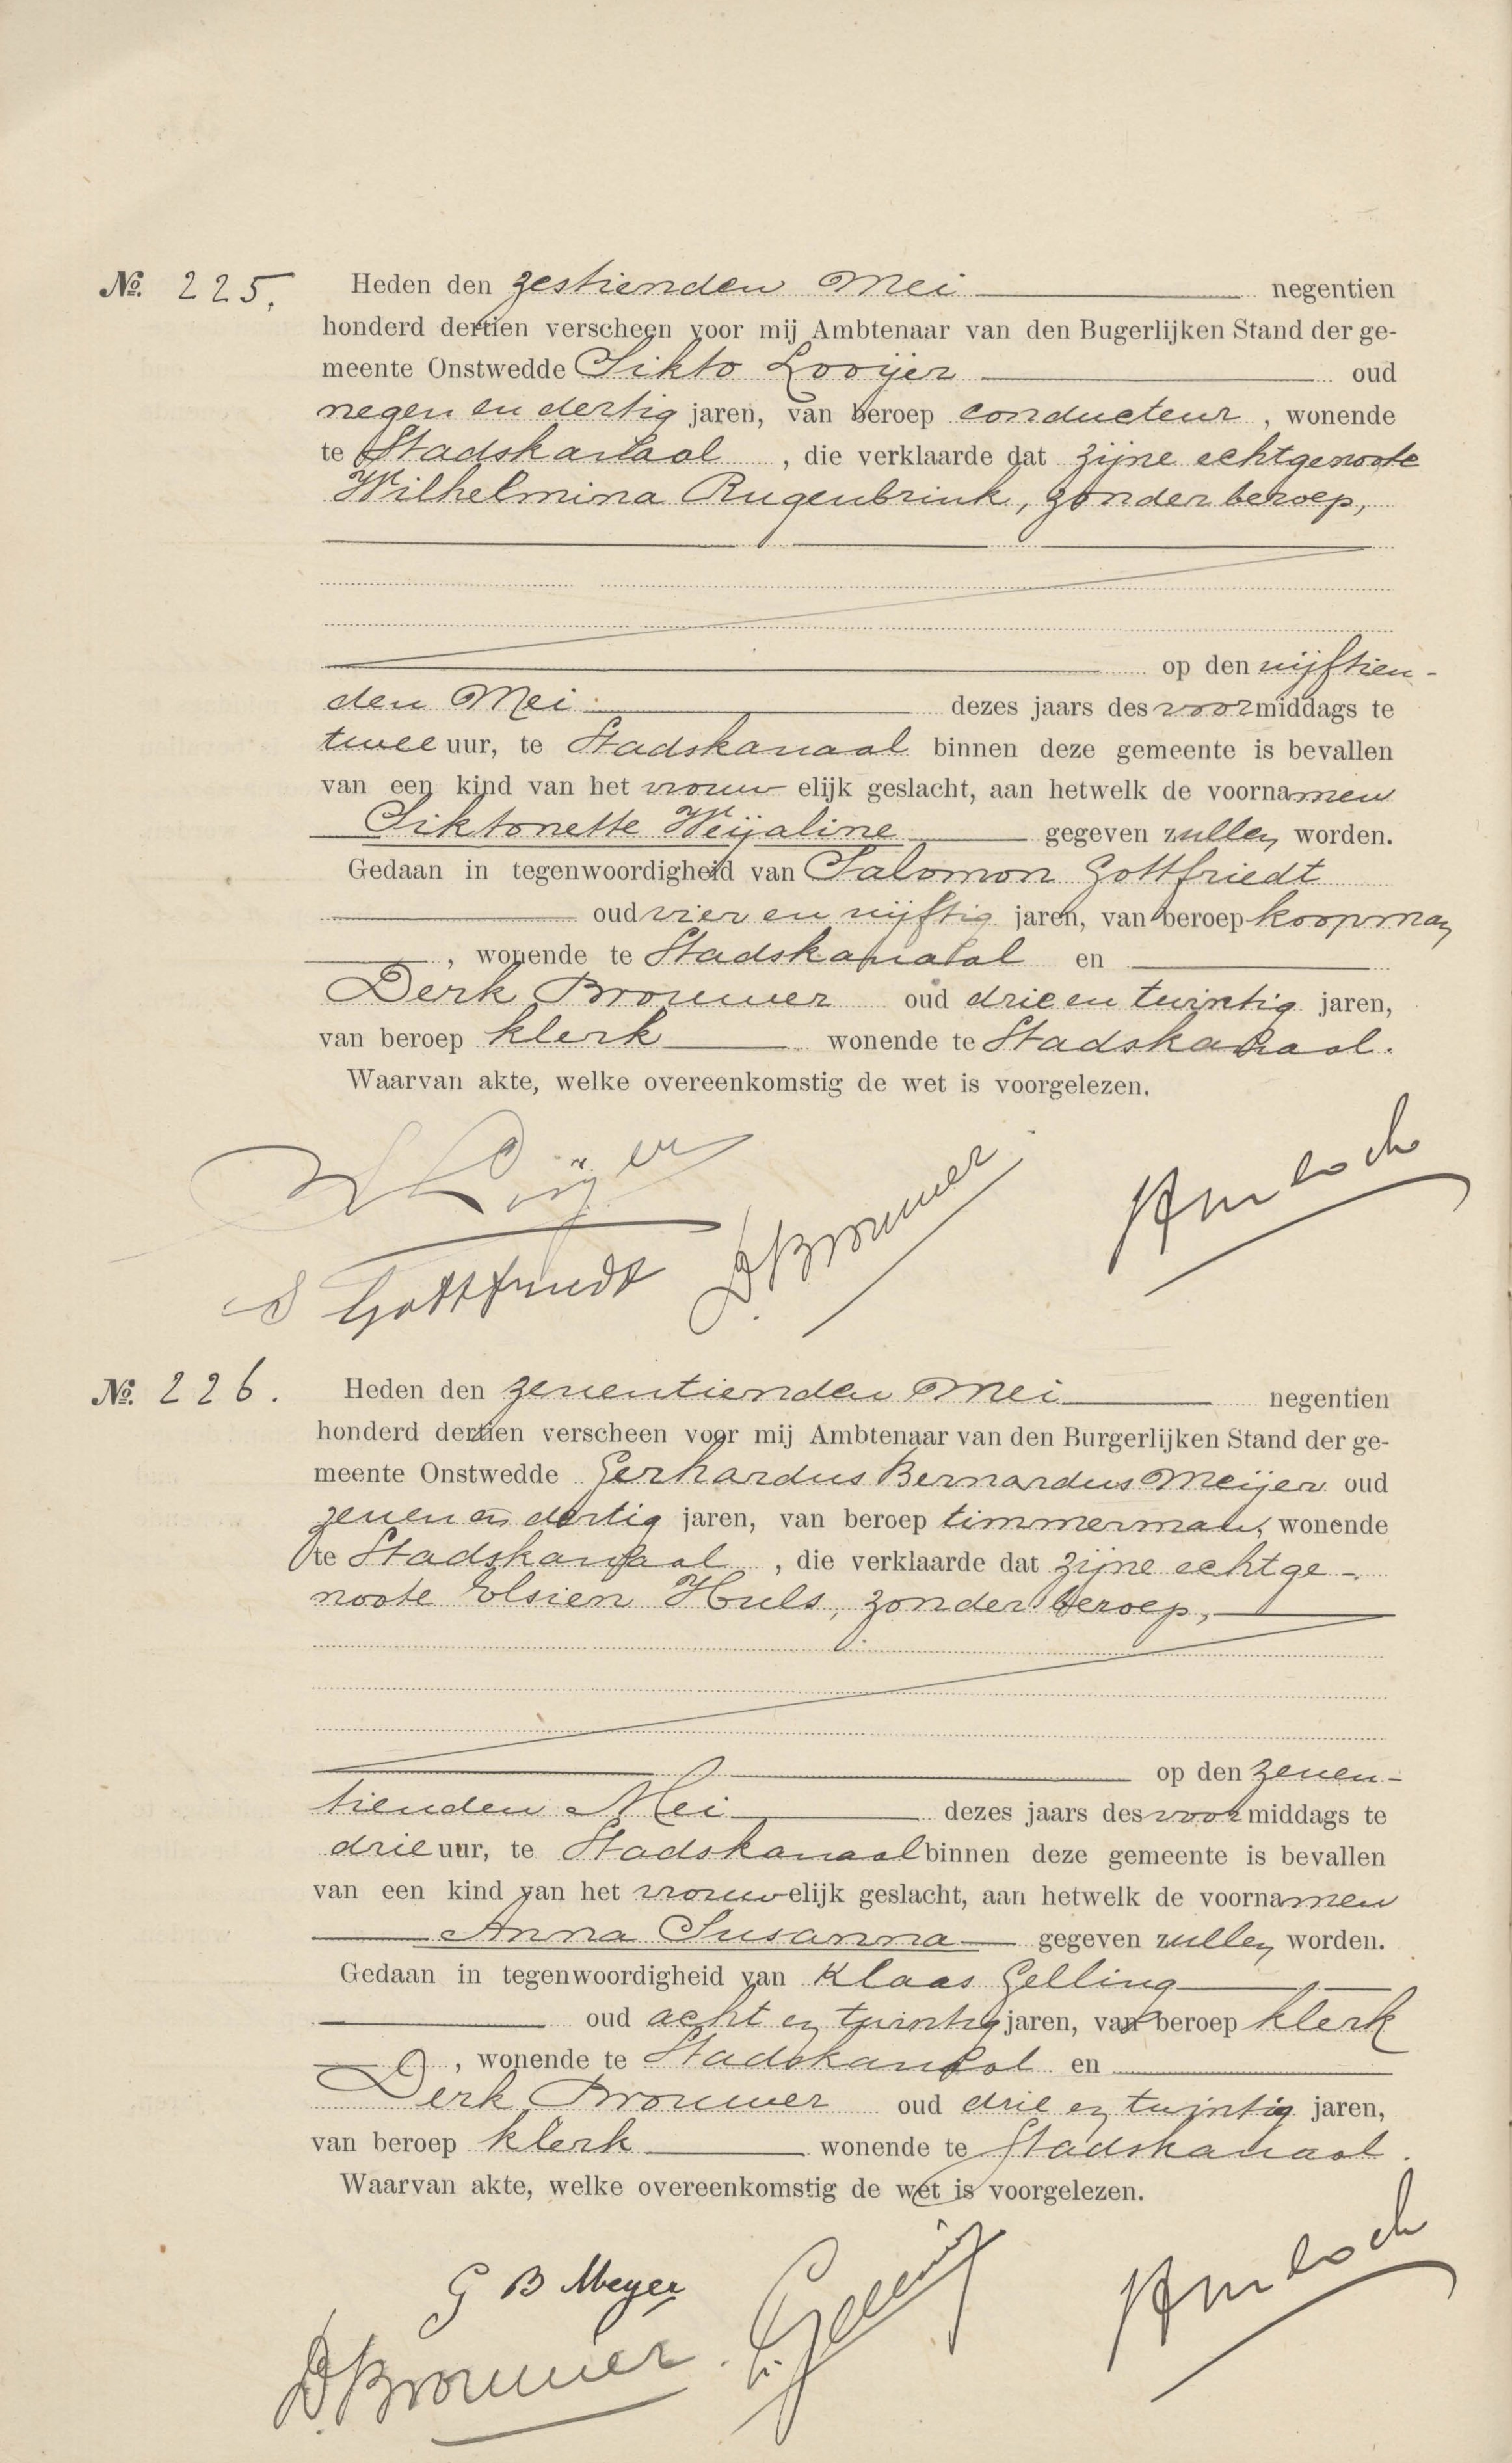 No. 225. Heden den zestienden Mei negentien
honderd dertien verscheen voor mij Ambtenaar van den Bugerlijken Stand der ge-
meente Onstwedde Sikto Looijer oud
negen en dertig jaren, van beroep conducteur, wonende
te Stadskanaal, die verklaarde dat zijne echtgenoote
Wilhelmina Rugenbrink, zonder beroep,
op den vijftien-
den Mei dezes jaars des voormiddags te
twee uur, te Stadskanaal binnen deze gemeente is bevallen
van een kind van het vrouwelijk geslacht, aan hetwelk de voornamen
Siktonette Weijaline gegeven zullen worden.
Gedaan in tegenwoordigheid van Salomon Gottfriedt
oud vier en vijftig jaren, van beroep koopman
, wonende te Stadskanaal en
Derk Brouwer oud drie en twintig jaren,
van beroep klerk wonende te Stadskanaal.
Waarvan akte, welke overeenkomstig de wet is voorgelezen.
S Gottfriedt D. Brouwer
No. 226. Heden den zeventienden Mei negentien
honderd dertien verscheen voor mij Ambtenaar van den Burgerlijken Stand der ge-
meente Onstwedde Gerhardus Bernardus Meijer oud
zeven en dertig jaren, van beroep timmerman, wonende
te Stadskanaal, die verklaarde dat zijne echtge-
noote Elsien Huls, zonder beroep,
op den zeven-
tienden Mei dezes jaars des voormiddags te
drie uur, te Stadskanaal binnen deze gemeente is bevallen
van een kind van het vrouwelijk geslacht, aan hetwelk de voornamen
Anna Susanna gegeven zullen worden.
Gedaan in tegenwoordigheid van Klaas Gelling
oud acht en twintig jaren, van beroep klerk
, wonende te Stadskanaal en
Derk Brouwer oud drie en twintig jaren,
van beroep klerk wonende te Stadskanaal.
Waarvan akte, welke overeenkomstig de wet is voorgelezen.
G B Meyer
D. Brouwer.